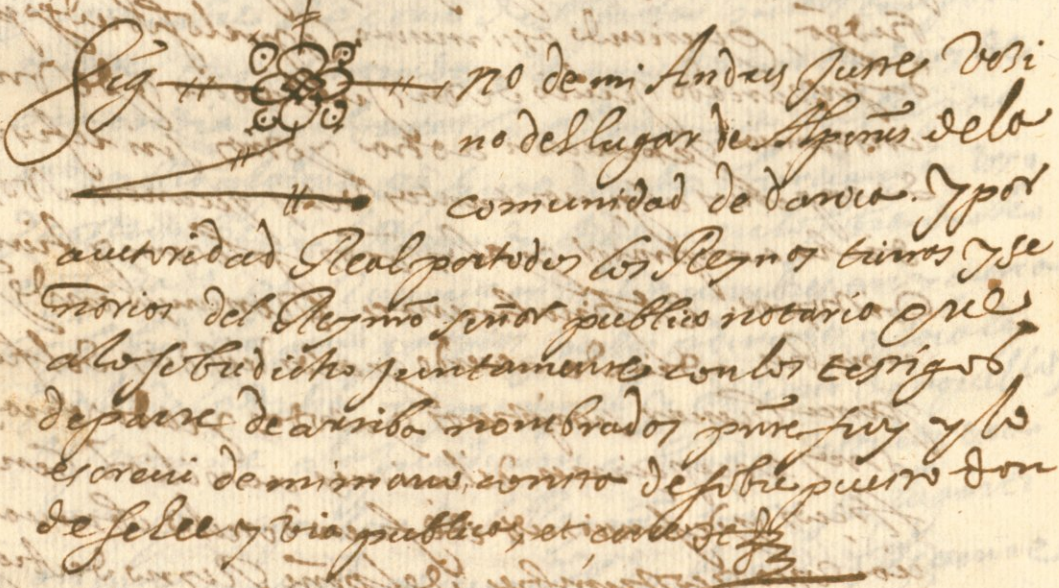 Sig no de mi Andres Juste Vezi
no del lugar de de la
comunidad de daroca. Y por
auctoridad Real por todos los Reynos tierras y se
ñorios del Rey nrō señor publico notario que
a lo sobredicho juntamente con los testigos
de parte de arriba nombrados pnte fuy y lo
escreui de mi mano, consta de sobre puesto don
de se lee y via publica, et cerre